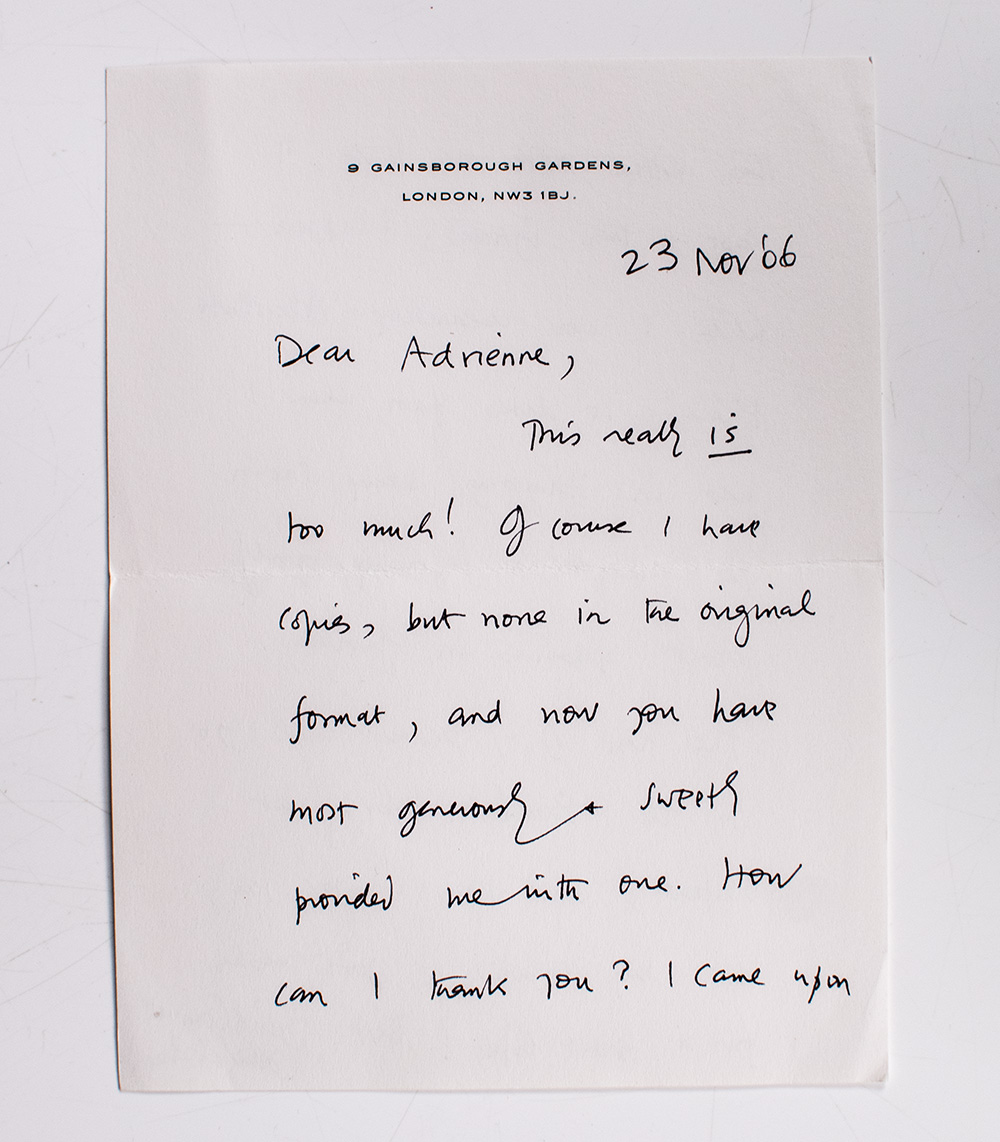 9 GAINSBOROUGH GARDENS,
LONDON, NW3 1BJ.
23 Nov '06
Dear Adrienne,
This really is
too much! Of course I have
copies, but none in the original
format, and now you have
most generously + sweetly
provided me with one. How
can I thank you? I came upon